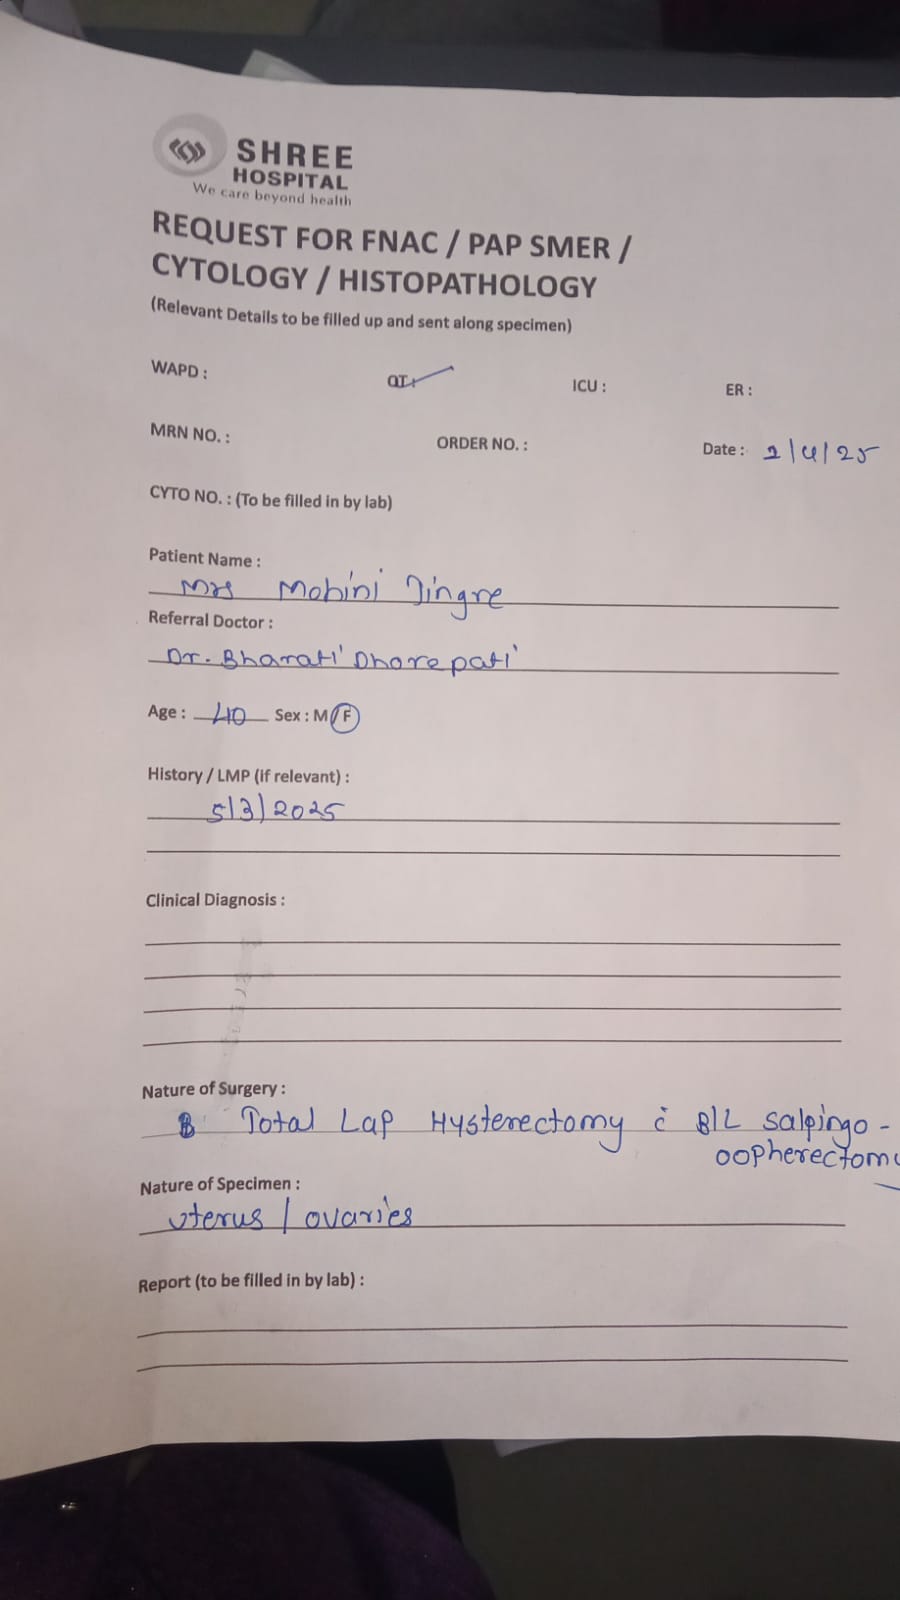 SHREE
HOSPITAL
We care beyond health
REQUEST FOR FNAC / PAP SMER /
CYTOLOGY / HISTOPATHOLOGY
(Relevant Details to be filled up and sent along specimen)
WAPD : OT: ICU : ER :
MRN NO. : ORDER NO. : Date : 2/4/25
CYTO NO. : (To be filled in by lab)
Patient Name :
Mrs Mohini Jingre
Referral Doctor :
Dr. Bharati Dhorepati
Age : 40 Sex : M/F
History / LMP (if relevant) :
5/3/2025
Clinical Diagnosis :
Nature of Surgery :
Total Lap Hysterectomy c B/L Salpingo -
oopherectomy
Nature of Specimen :
Uterus / ovaries
Report (to be filled in by lab) :